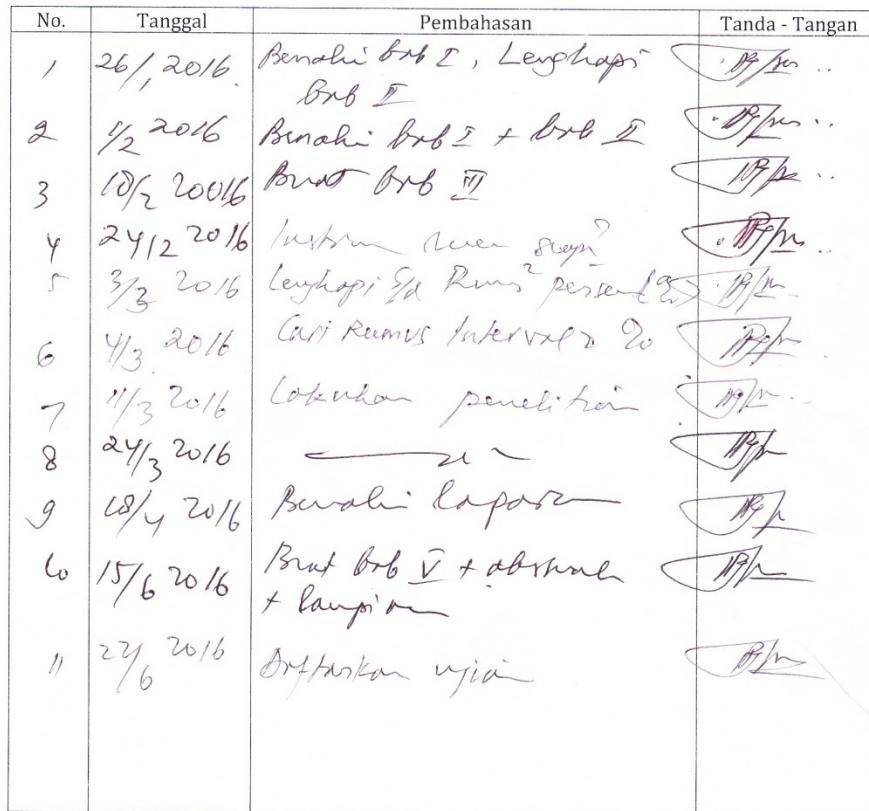 No. Tanggal Pembahasan Tanda - Tangan
1 26/1 2016 Benahi bab I, Lengkapi
bab II
2 1/2 2016 Benahi bab I + bab II
3 18/2 20016 Buat bab III
4 24/2 2016
5 3/3 2016 Lengkapi
6 4/3 2016 Cari Rumus Interval %
7 11/3 2016 Lakukan penelitian
8 24/3 2016
9 18/4 2016 Benahi laporan
10 15/6 2016 Buat bab V + abstrak
+ lampiran
11 22/6 2016 Daftarkan ujian